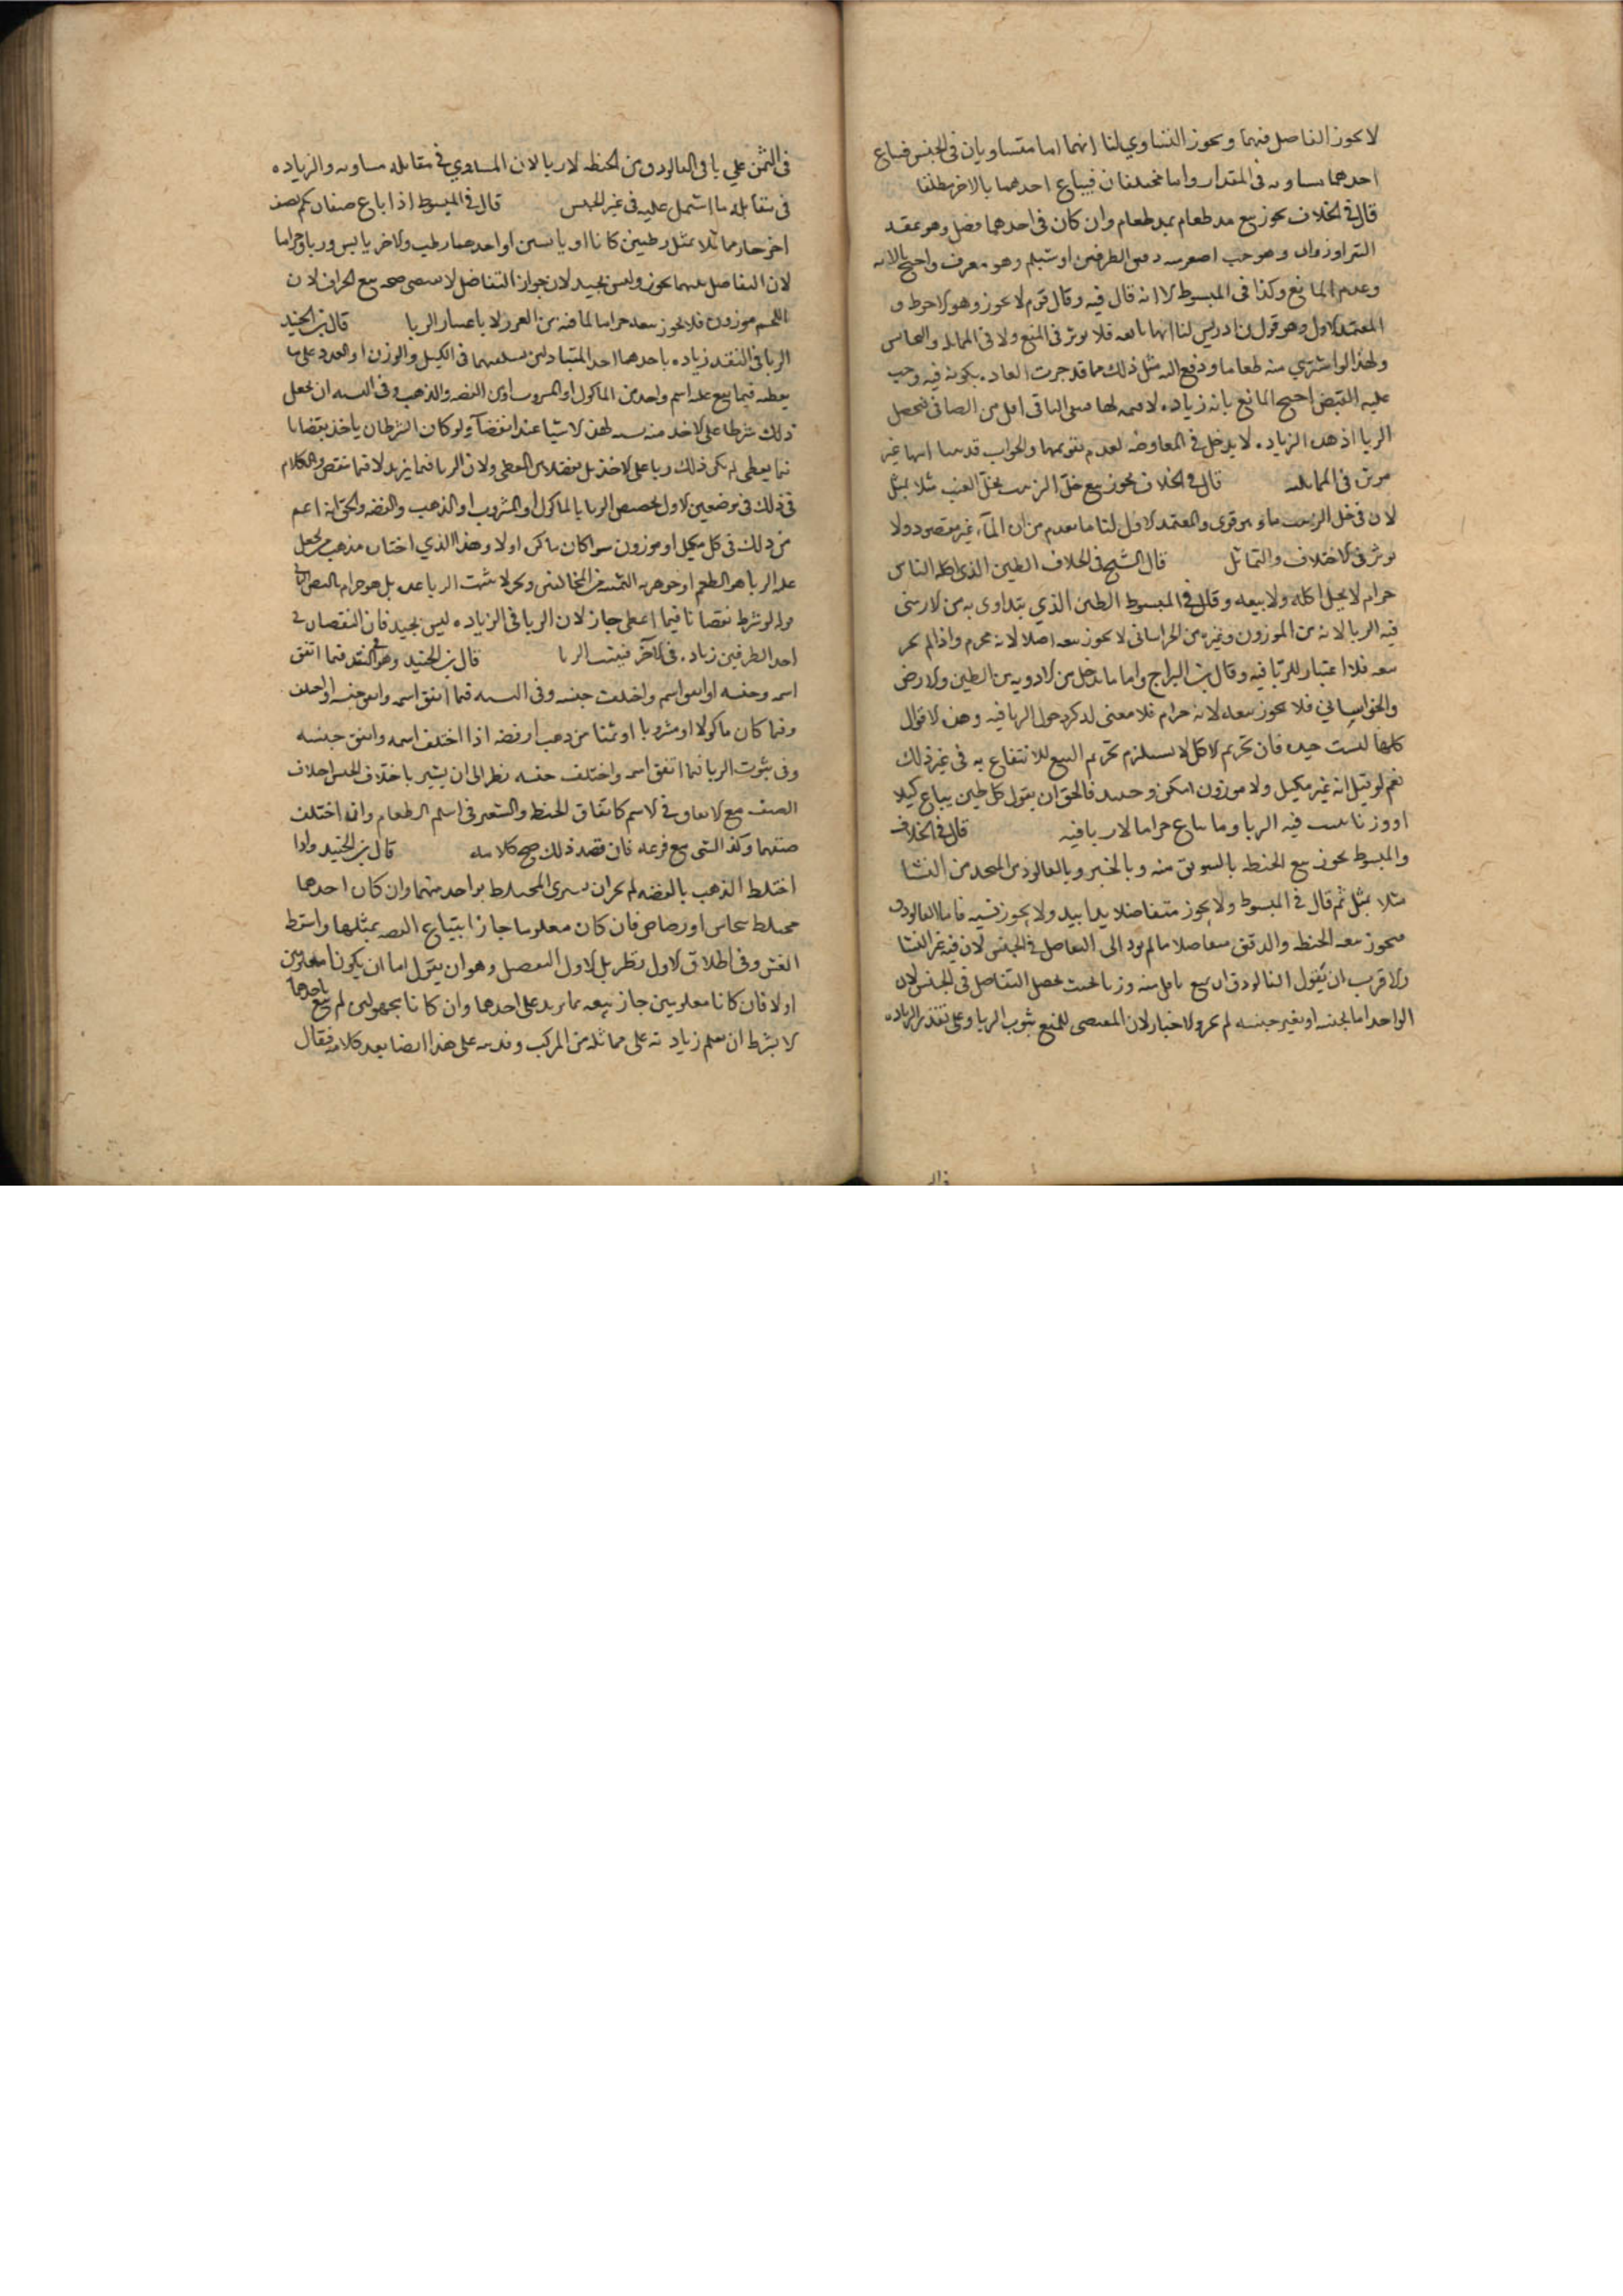 لا يجوز التفاضل فيهما ويجوز التساوي لنا انهما اما متساويان في الجنس فيباع
احدهما بمساويه في المقدار واما مختلفان فيباع احدهما بالاخر مطلقا
قال في الخلاف يجوز بيع مد طعام بمد طعام وان كان في احدهما فضل وهو عقد
التبن او زوان وهو حب اصغر منه دقيق الطرفين او شيلم وهو معرف واحتج بالايه
وعدم المانع وكذا في المبسوط الا انه قال فيه وقال قوم لا يجوز وهو الاحوط و
المعتمد الاول وهو قول ابن ادريس لنا انها تابعه فلا يوثر في المنع ولا في المماثله والتجانس
ولهذا لو اشتري منه طعاما ودفع اليه مثل ذلك مما قد جرت العاده بكونه فيه وجب
عليه القبض احتج المانع بانه زياده لا قيمه لها فيبقى الباقي اقل من الصافي فيحصل
الربا اذ هذه الزياده لا يدخل في المعاوضه لعدم تقويمها والجواب قد بينا انها غير
موثره في المماثله قال في الخلاف يجوز بيع خل الزبيب بخل العنب مثلا بمثل
لان في خل الزبيب ماء وهو قوي والمعتمد الاول لنا ما تقدم من ان الماء غير مقصود ولا
يوثر في الاختلاف والتماثل قال الشيخ في الخلاف الطين الذي ياكله الناس
حرام لا يحل اكله ولا بيعه وقال في المبسوط الطين الذي يتداوى به من الارمني
فيه الربا لانه من الموزون وغيره من الخراساني لا يجوز بيعه اصلا لانه محرم واذا لم يجز
بيعه فلا اعتبار للربا فيه وقال ابن البراج واما ما يدخل من الادويه من الطين والارمني
والخراساني فلا يجوز بيعه لانه حرام فلا معنى لذكر دخول الربا فيه وهذه الاقوال
كلها ليست جيده فان تحريم الاكل لا يستلزم تحريم البيع للانتفاع به في غير ذلك
نعم لو قيل انه غير مكيل ولا موزون امكن وحينئذ فالحق ان يقول كل طين يباع كيلا
او وزنا يثبت فيه الربا وما يباع جزافا لا ربا فيه قال في الخلاف
والمبسوط يجوز بيع الحنطه بالسويق منه وبالخبز وبالفالوذق المتخذ من النشا
مثلا بمثل ثم قال في المبسوط ولا يجوز متفاضلا يدا بيد ولا يجوز نسيه فاما الفالوذق
فيجوز بيعه بالحنطه والدقيق متفاضلا ما لم يود الى التفاضل في الجنس لان فيه غير النشا
والاقرب ان يقول الفالوذق ان بيع باقل منه وزنا بحيث يحصل التفاضل في الجنس
الواحد اما بجنسه او بغير جنسه لم يجز والاجاز لان المقتضي للمنع ثبوت الربا وعلى تقدير الزياده
في الثمن علي باقي الفالوذق من الحنطه لا ربا لان المساوي في مقابله مساويه والزياده
في مقابله ما اشتمل عليه في غير الجنس قال في المبسوط اذا باع صنفا من لحم بصنف
اخر جاز مماثلا بمثل رطبين كانا او يابسين او احدهما رطب والاخر يابس وزنا وجزافا
لان التفاضل بينهما يجوز وليس بجيد لان جواز التفاضل لا يقتضي صحه بيع الجزاف لان
اللحم موزون فلا يجوز بيعه جزافا لما فيه من الغرر لا باعتبار الربا قال ابن الجنيد
الربا في النقد زياده باحدهما احد المتبادلين بسلعتيهما في الكيل والوزن او العدد على ما
يعطيه فيما يقع عليه اسم واحد من الماكول او المشروب او من الفضه والذهب وفي النسيه ان يجعل
ذلك شرطا على الاخذ منه نسيه لهذه الاشيا عند انقضا ولو كان الشرط ان ياخذ بنقصانا
فيما يعطى لم يكن ذلك ربا على الاخذ بل تفضلا من المعطي ولان الربا فيما يزيد لا فيما نقص والكلام
في ذلك في موضعين الاول تخصيص الربا بالماكول او المشروب او الذهب والفضه والحق انه اعم
من ذلك في كل مكيل او موزون سوا كان ما ذكره اولا وهذا الذي اختاره مذهب من يجعل
عله الربا هو الطعم او جوهريه الثمنيه من المخالفين ونحن لا نثبت الربا بعله بل هو حرام بالنص الثاني
قوله لو شرط نقصانا فيما اعطى جاز لان الربا في الزياده ليس بجيد فان النقصان في
احد الطرفين زياده في الاخر فيثبت الربا قال ابن الجنيد وهو في النقد فيما اتفق
اسمه وجنسه او اتفق اسمه واختلف جنسه وفي النسيه فيما اتفق اسمه واتفق جنسه او اختلف
وفيما كان ماكولا او مشروبا او ثمنا من ذهب او فضه اذا اختلف اسمه واتفق جنسه
وفي ثبوت الربا فيما اتفق اسمه واختلف جنسه نظر الى ان يشير باختلاف الجنس اختلاف
الصنف مع الاتفاق في الاسم كاتفاق الحنطه والشعير في اسم الطعام وان اختلف
صنفهما وكذا الشي مع فرعه فان قصد ذلك صح كلامه قال ابن الجنيد واذا
اختلط الذهب بالفضه لم يجز ان يشترى المختلط بواحد منهما وان كان احدهما
مختلط بنحاس او رصاص فان كان معلوما جاز ابتياع الفضه بمثلها واسقط
الغش وفي اطلاق الاول نظر بل الاول التفصيل وهو ان يقول اما ان يكونا معلومين
اولا فان كانا معلومين جاز بيعه بما يزيد على احدهما وان كانا مجهولين لم يبع باحدهما
الا بشرط ان يعلم زيادته على مماثله من المركب وقد نبه على هذا ايضا بعد كلامه فقال